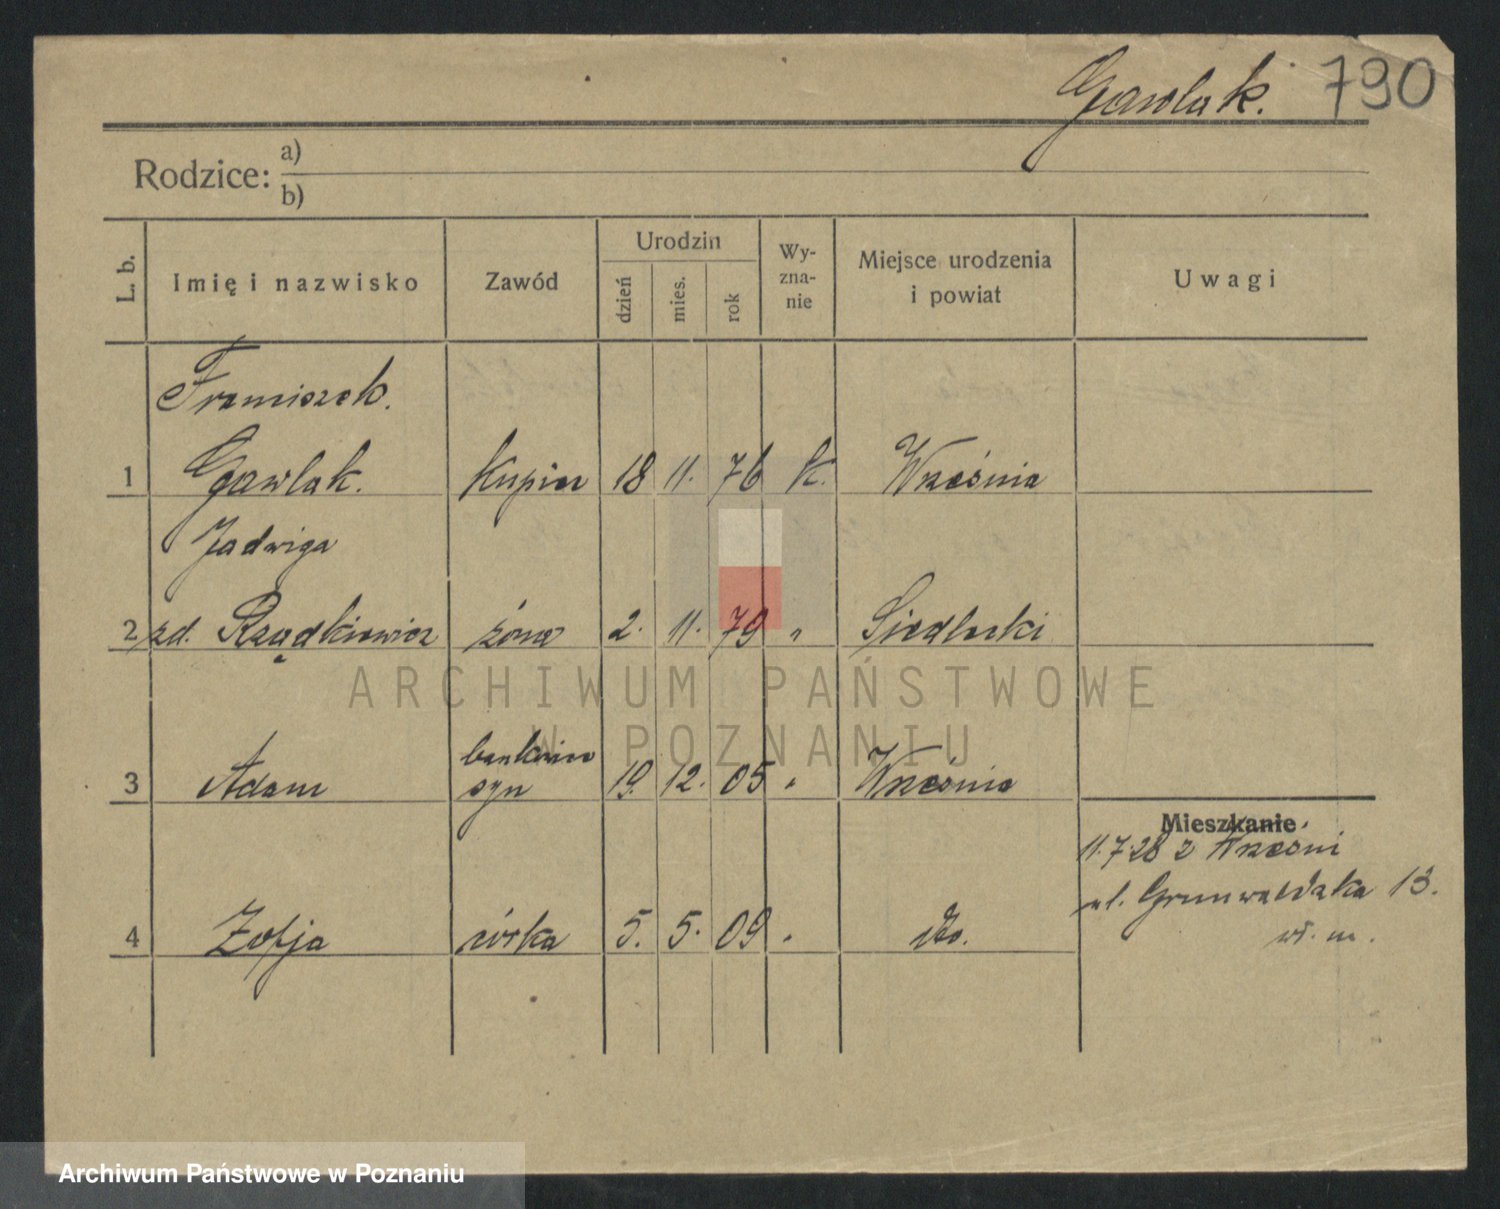 Gawlak. 790
Rodzice: a)
b)
L. b.
Imię i nazwisko
Zawód
Urodzin
dzień
mies.
rok
Wy-
zna-
nie
Miejsce urodzenia
i powiat
Uwagi
Franciszek.
1 Gawlak. Kupiec 18 11. 76 K. Września
Jadwiga
2 zd. Rządkiewicz żona 2. 11. 79 " Siedlecki
bankowiec
3 Adam syn 19. 12. 05 " Września
Mieszkanie
11.7.28 z Wrześni
ul. Grunwaldzka 13.
wł. m.
4 Zofja córka 5. 5. 09 " dto.
ARCHIWUM PAŃSTWOWE
W POZNANIU
Archiwum Państwowe w Poznaniu